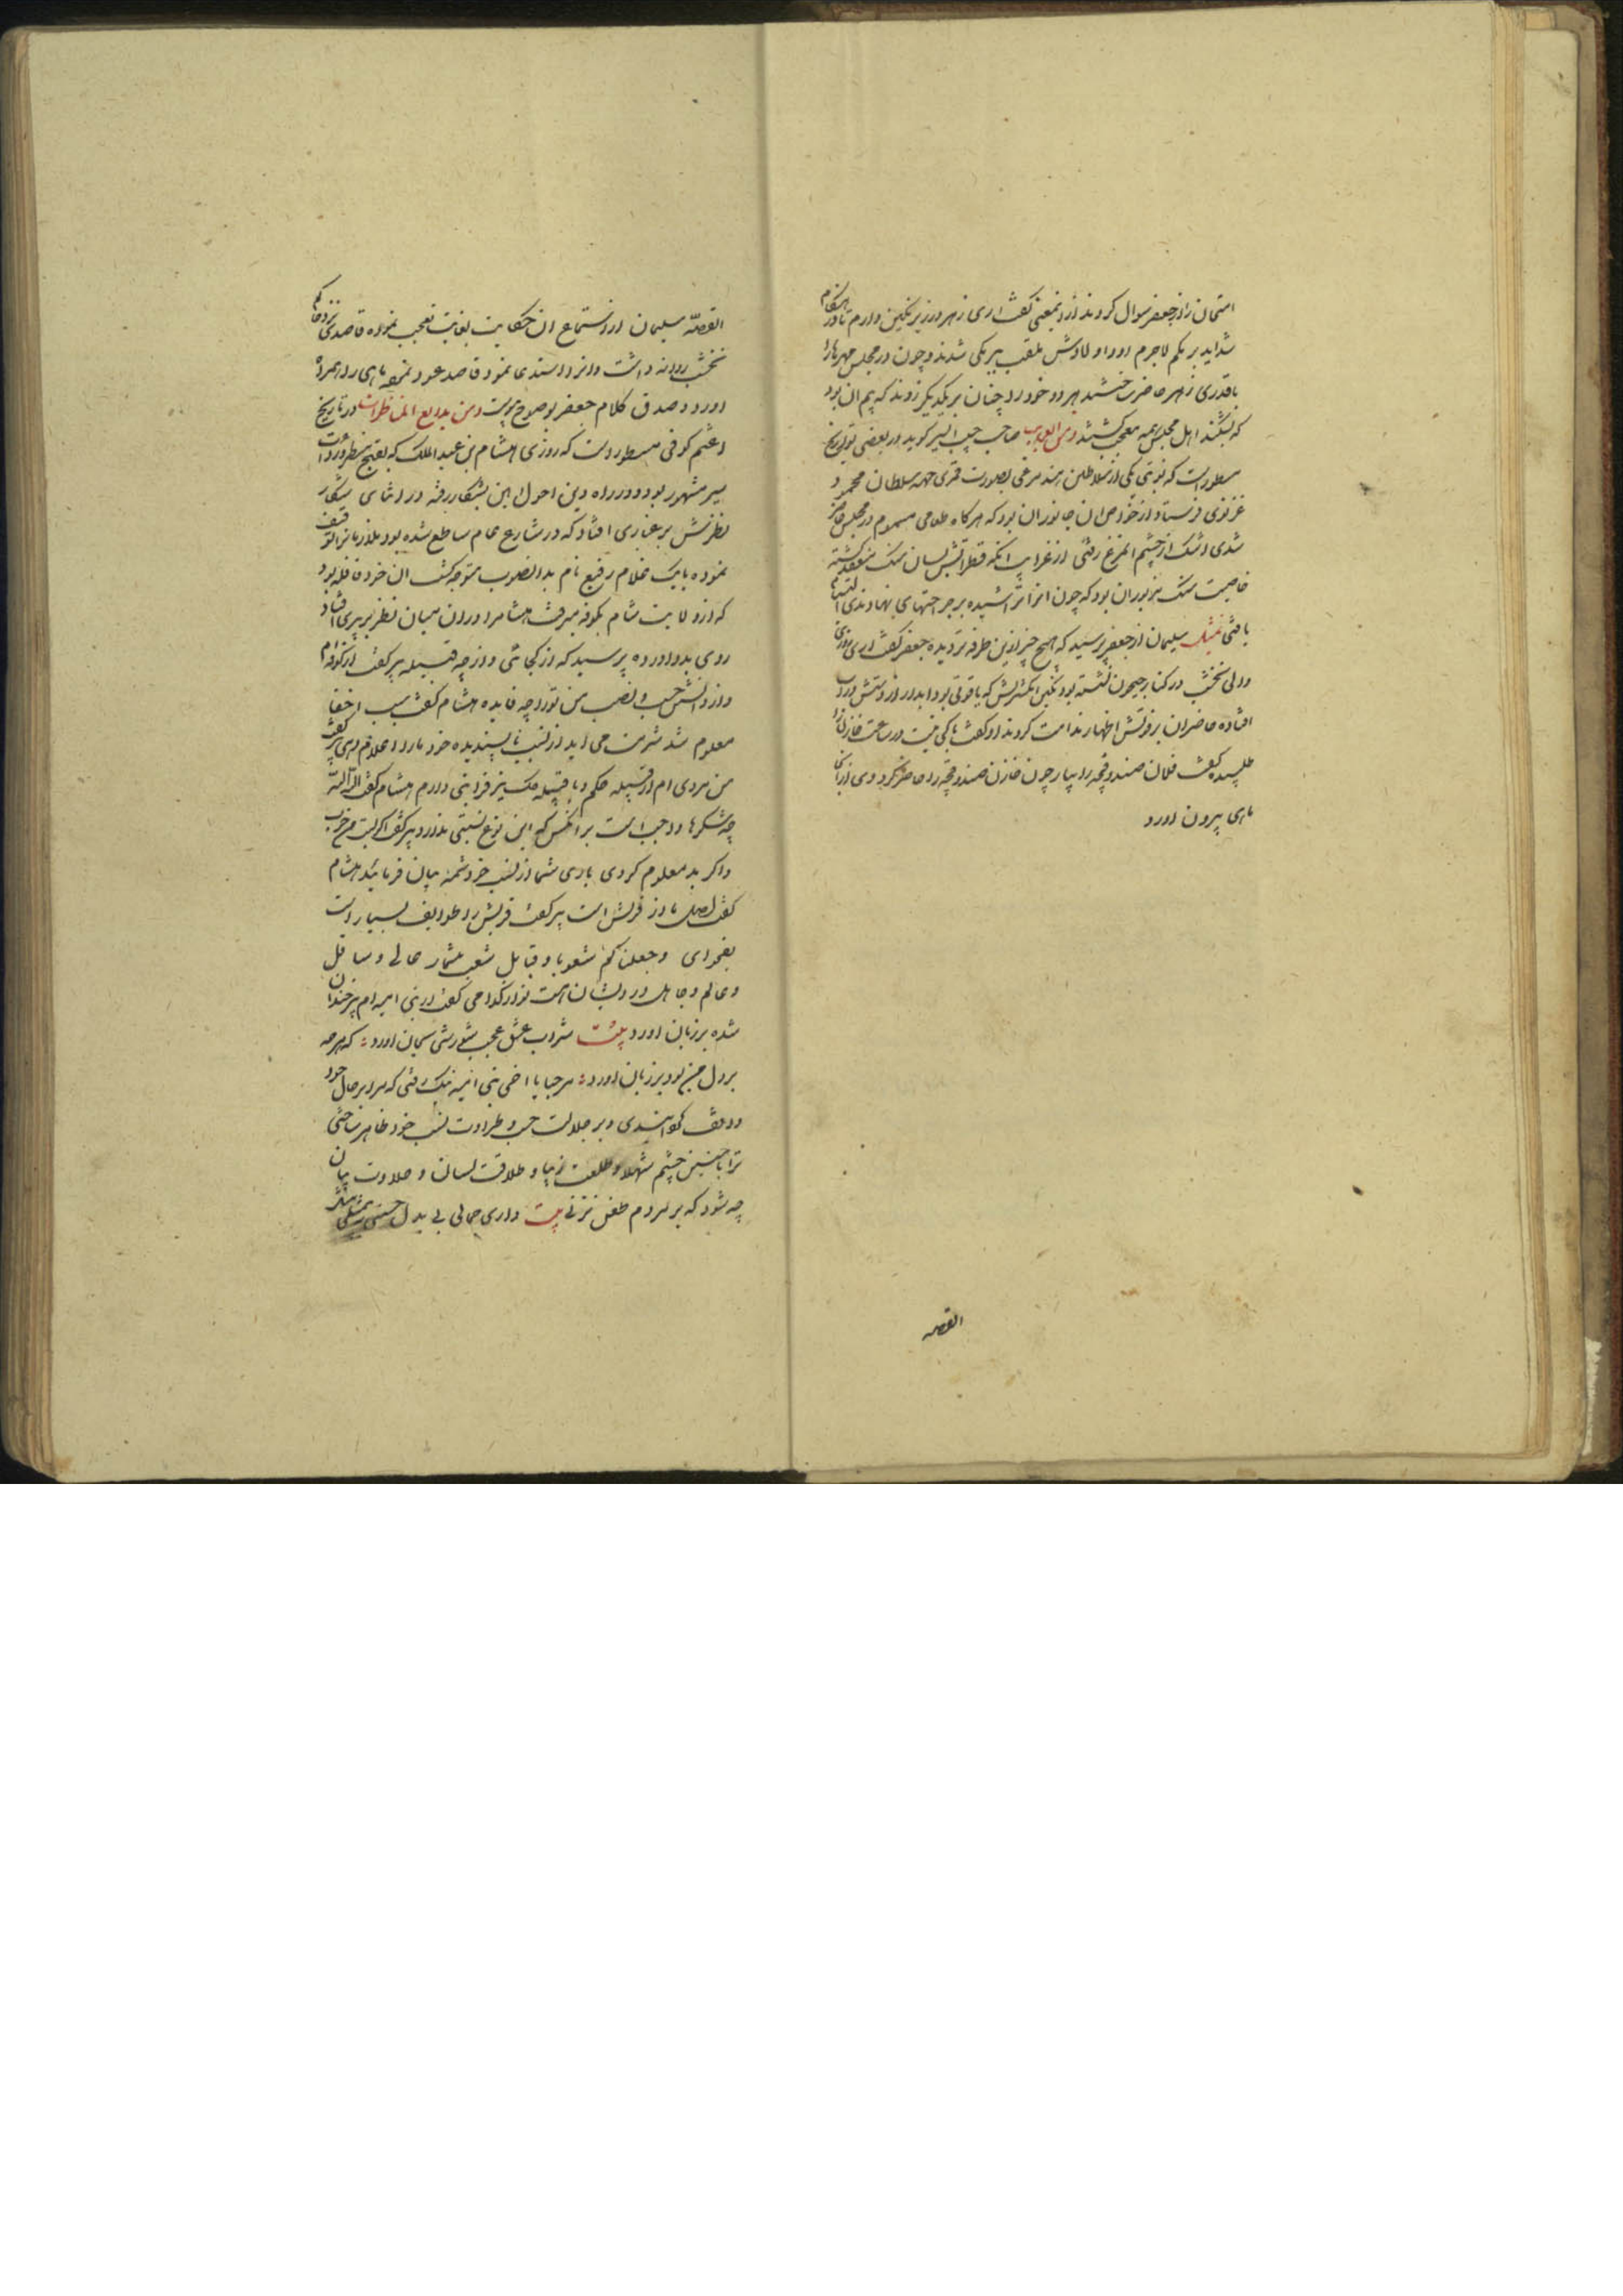 امتحان را از جعفر سوال کردند از اینمعنی گفت اری زهر در زیر نکین دارم تا در هنکام
شداید بر مکم لاجرم او و اولادش ملقب ببرمکی شدند و چون در مجلس مهرهارا
باقدری زهر حاضر ساختند هر دو خود را چنان بر یکدیکر زدند که بیم ان بود
که بشکنند اهل مجلس همه متعجب کشتند ومن العجایب صاحب حبیب السیر کوید در بعضی تواریخ
مسطورست که نوبتی یکی از سلاطین هند مرغی بصورت قمری جهه سلطان محمود
غزنوی فرستاد از خواص ان جانوران بود که هر کاه طعامی مسموم در مجلس حاضر
شدی اشک از چشم انمرغ رفتی از غرایب انکه قطراتش بسان سنک منعقد کشته
خاصیت سنک نیز بوران بود که چون انرا تراشیده بر جراحتهای نهادندی التیام
یافتی تمثیل سلیمان از جعفر پرسید که هیچ چیز ازین طرفه تر دیده جعفر کفت اری روزی
والی نخشب در کنار جیحون نشسته بود نکین انکشترش که یاقوتی بود ابدار از دستش در اب
افتاده حاضران بر فوتش اظهار ندامت کردند او کفت باکی نیست در ساعت خازن را
طلبیده کفت فلان صندوقچه را بیار چون خازن صندوقچه را حاضر کرد وی از ان
ماهی بیرون اورد
القصه
القصّه سلیمان از استماع ان حکایت بغایت تعجب نموده قاصدی نزد حاکم
نخشب روانه داشت و انرا استدعا نمود قاصد عود نموده ماهی را همراه
اورد و صدق کلام جعفر بوضوح پیوست ومن بدایع المناظرات در تاریخ
اعثم کوفی مسطورست که روزی هشام بن عبد الملک که بقبح منظر و رداءت
سیر مشهور بود و در راه دین احول این بشکار رفته در اثنای شکار
نظرش بر غباری افتاد که در شارع عام ساطع شده بود ملازمانرا توقیف
نموده با یک غلام رفیع نام بدانصوب متوجه کشت ان خود قافله بود
که از ولایت شام بکوفه میرفت هشام را دران میان نظر بر پیری افتاد
روی بدو اورده پرسید که از کجائی و از چه قبیله پیر کفت از کوفه ام
و از دانستن حسب و نسب من تورا چه فایده هشام کفت سبب اخفا
معلوم شد شرمت می اید از نسب ناپسندیده خود ما را اعلام دهی پیر کفت
من مردی ام از قبیله حکم و با قبیله عک نیز قرابتی دارم هشام کفت
چه شکرها واجب است بر انکس که این نوع نسبتی ندارد پیر کفت
و اکر بد معلوم کردی باری شما از نسب خود شمه بیان فرمائید هشام
کفت اصل ما از قریش است پیر کفت قریش را طوایف بسیار است
بفحوای وجعلناکم شعوبا وقبایل شعب بیشمار عالی و سافل
و عالم و جاهل در ایشان هست تو از کدامی کفت از بنی امیه ام پیر خندان
شده بر زبان اورد بیت شراب عشق عجب شورشی بجان اورد که هرچه
بر دل من بود بر زبان اورد مرحبا یا اخی بنی امیه نیک رفتی که مرا بر حال خود
واقف کردانیدی و بر جلالت حسب و طراوت نسب خود ظاهر ساختی
ترا با چنین چشم شهلا و طلعت زیبا و طلاقت لسان و حلاوت بیان
چه شود که بر مردم طعن نزنی بیت داری جمالی بی بدل